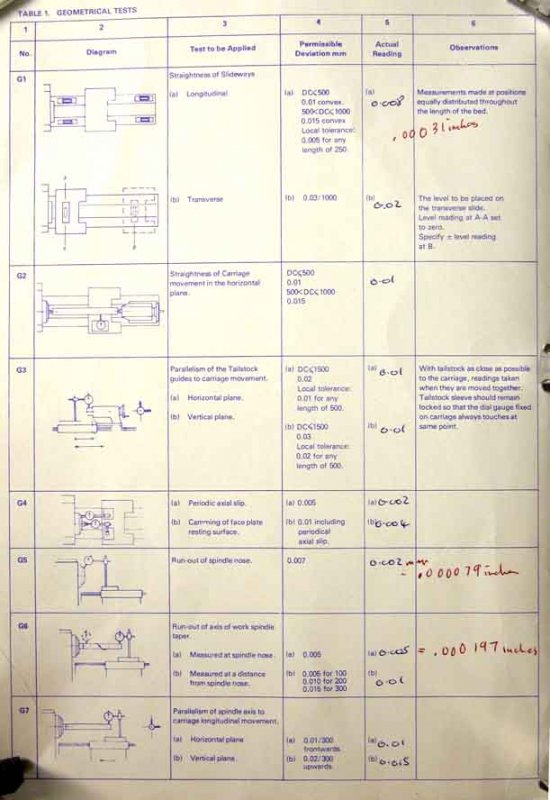 TABLE 1. GEOMETRICAL TESTS
1 2 3 4 5 6
No. Diagram Test to be Applied Permissible Deviation mm Actual Reading Observations
G1
Straightness of Slideways
(a) Longitudinal
(a) DC≤500
0.01 convex.
500<DC≤1000
0.015 convex
Local tolerance:
0.005 for any
length of 250.
(a)
0.008
Measurements made at positions
equally distributed throughout
the length of the bed.
.00031 inches
(b) Transverse
(b) 0.03/1000
(b)
0.02
The level to be placed on
the transverse slide.
Level reading at A-A set
to zero.
Specify ± level reading
at B.
G2
Straightness of Carriage
movement in the horizontal
plane.
DC≤500
0.01
500<DC≤1000
0.015
0.01
G3
Parallelism of the Tailstock
guides to carriage movement.
(a) Horizontal plane.
(b) Vertical plane.
(a) DC≤1500
0.02
Local tolerance:
0.01 for any
length of 500.
(b) DC≤1500
0.03
Local tolerance:
0.02 for any
length of 500.
(a)
0.01
(b)
0.01
With tailstock as close as possible
to the carriage, readings taken
when they are moved together.
Tailstock sleeve should remain
locked so that the dial gauge fixed
on carriage always touches at
same point.
G4
(a) Periodic axial slip.
(b) Camming of face plate
resting surface.
(a) 0.005
(b) 0.01 including
periodical
axial slip.
(a) 0.002
(b) 0.004
G5
Run-out of spindle nose.
0.007
0.002 mm
= .000079 inches
G6
Run-out of axis of work spindle
taper.
(a) Measured at spindle nose.
(b) Measured at a distance
from spindle nose.
(a) 0.005
(b) 0.005 for 100
0.010 for 200
0.015 for 300
(a) 0.005 = .000197 inches
(b)
0.01
G7
Parallelism of spindle axis to
carriage longitudinal movement.
(a) Horizontal plane
(b) Vertical plane.
(a) 0.01/300
frontwards.
(b) 0.02/300
upwards.
(a) 0.01
(b) 0.015